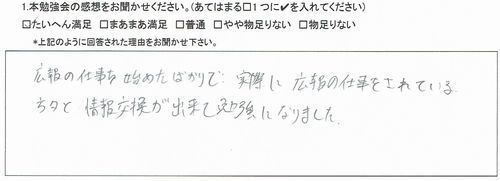 1.本勉強会の感想をお聞かせください。(あてはまる□1つに✔を入れてください)
☑たいへん満足 □まあまあ満足 □普通 □やや物足りない □物足りない
*上記のように回答された理由をお聞かせ下さい。
広報の仕事を始めたばかりで、実際に広報の仕事をされている
方々と情報交換が出来て勉強になりました。